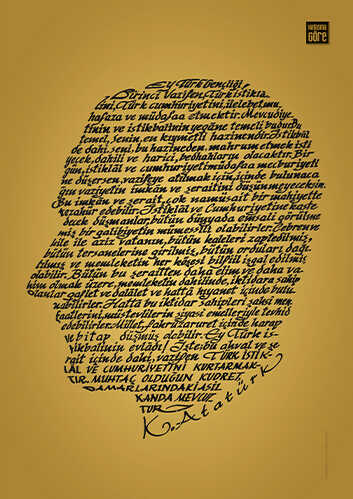 GÖRE
Ey Türk Gençliği!
Birinci vazifen, Türk istikla
lini, Türk cumhuriyetini, ilelebet mu
hafaza ve müdafaa etmektir. Mevcudiye
tinin ve istikbalinin yegâne temeli budur. Bu
temel, senin, en kıymetli hazinendir. İstikbal
de dahi, seni, bu hazineden, mahrum etmek isti
yecek, dahilî ve haricî, bedhahların olacaktır. Bir
gün, istiklâl ve cumhuriyeti müdafaa mecburiyeti
ne düşersen, vazifeye atılmak için, içinde bulunaca
ğın vaziyetin imkân ve şeraitini düşünmeyeceksin.
Bu imkân ve şerait, çok namusait bir mahiyette
tezahür edebilir. İstiklâl ve Cumhuriyetine kaste
decek düşmanlar, bütün dünyada emsali görülme
miş bir galibiyetin mümessili olabilirler. Cebren ve
hile ile aziz vatanın, bütün kaleleri zaptedilmiş,
bütün tersanelerine girilmiş, bütün orduları dağı
tılmış ve memleketin her köşesi bilfiil işgal edilmiş
olabilir. Bütün bu şeraitten daha elim ve daha va
him olmak üzere, memleketin dahilinde, iktidara sahip
olanlar gaflet ve dalâlet ve hattâ hıyanet içinde bulu
nabilirler. Hattâ bu iktidar sahipleri şahsî men
faatlerini, müstevlilerin siyasi emelleriyle tevhid
edebilirler. Millet, fakruzaruret içinde harap
ve bîtap düşmüş olabilir. Ey Türk is
tikbalinin evlâdı! İşte; bu ahval ve şe
rait içinde dahi, vazifen TÜRK İSTİK-
LÂL VE CUMHURİYETİNİ KURTARMAK-
TIR. MUHTAÇ OLDUĞUN KUDRET,
DAMARLARINDAKİ ASİL
KANDA MEVCUT-
TUR
K. Atatürk